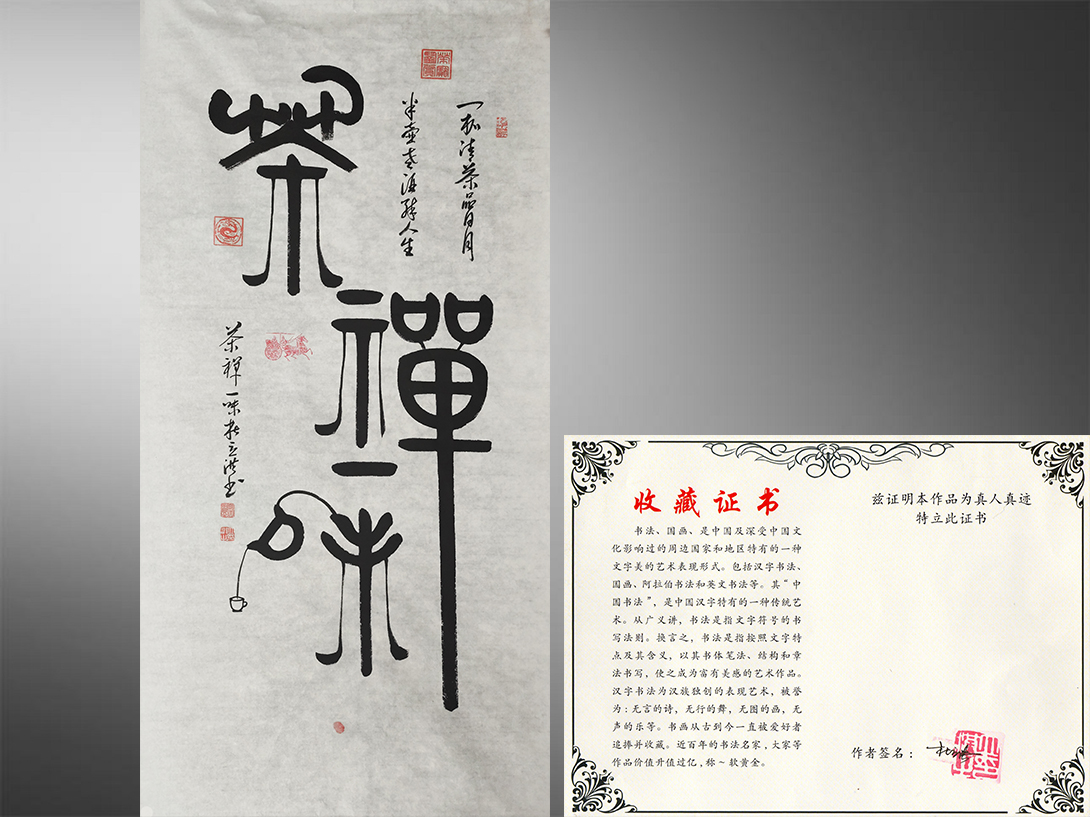 一杯清茶品日月
半壶老酒醉人生
茶
禪
一
味
茶禅一味
收藏证书
书法、国画、是中国及深受中国文
化影响过的周边国家和地区特有的一种
文字美的艺术表现形式。包括汉字书法、
国画、阿拉伯书法和英文书法等。其“中
国书法”，是中国汉字特有的一种传统艺
术。从广义讲，书法是指文字符号的书
写法则。换言之，书法是指按照文字特
点及其含义，以其书体笔法、结构和章
法书写，使之成为富有美感的艺术作品。
汉字书法为汉族独创的表现艺术，被誉
为：无言的诗，无行的舞，无图的画，无
声的乐等。书画从古到今一直被爱好者
追捧并收藏。近百年的书法名家，大家等
作品价值升值过亿，称～软黄金。
兹证明本作品为真人真迹
特立此证书
作者签名：